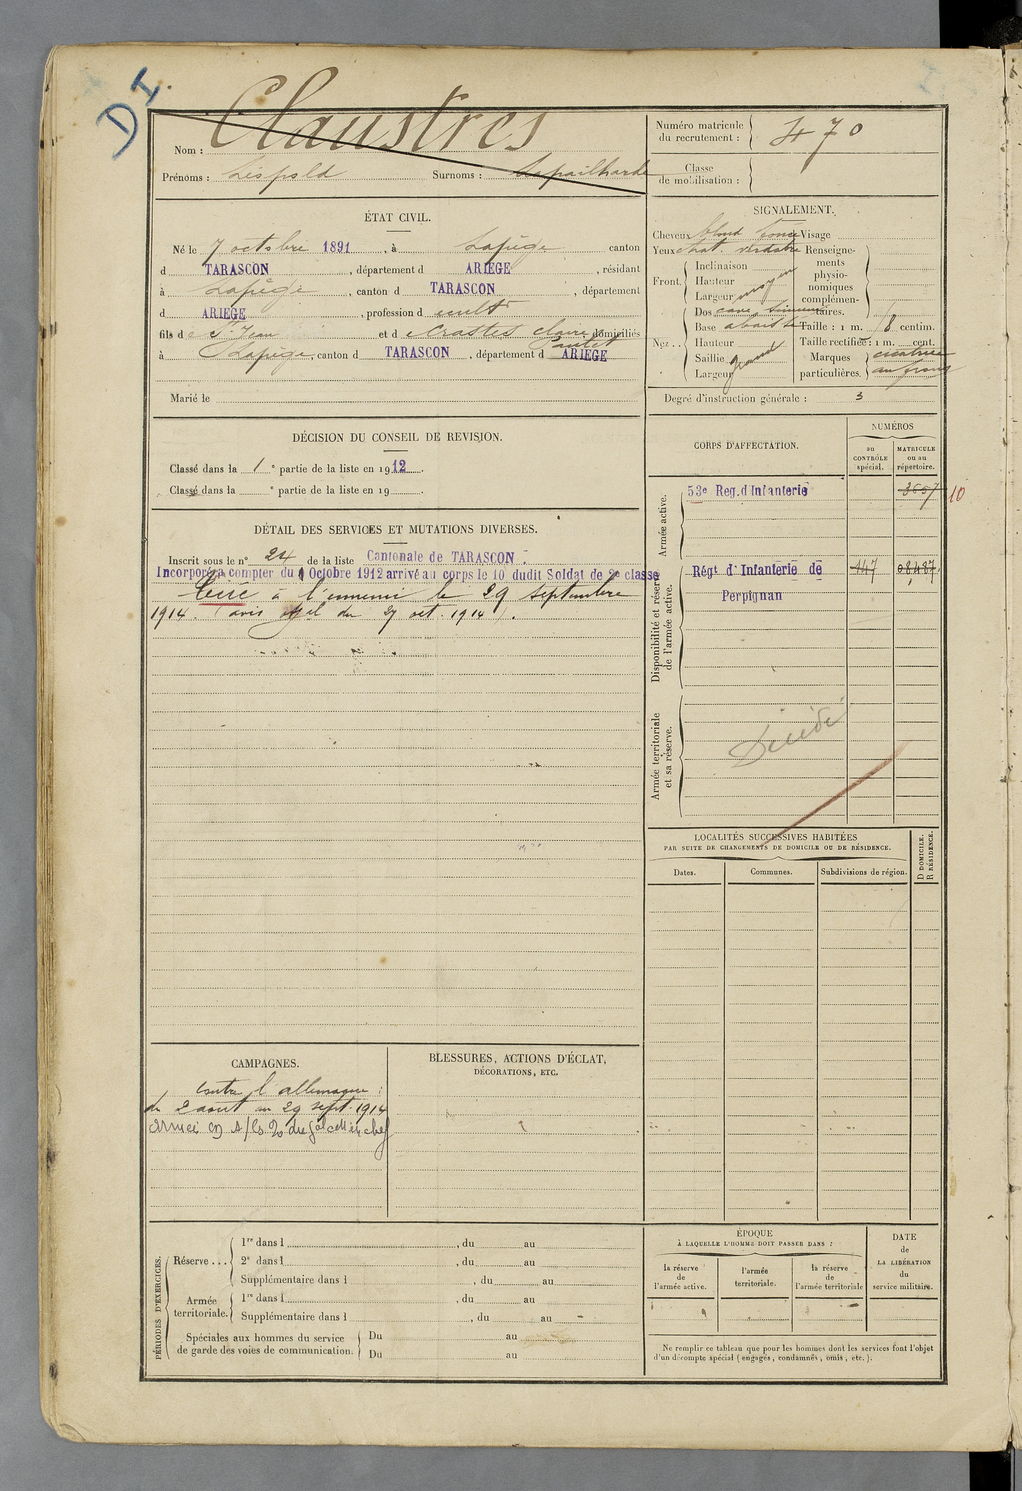 DI.
Nom : Claustres
Prénoms : Léopold Surnoms : Lapailharde
Numéro matricule du recrutement : 470
Classe de mobilisation :
ÉTAT CIVIL.
Né le 7 octobre 1891, à Lapège canton
d TARASCON, département d ARIEGE, résidant
à Lapège, canton d TARASCON, département
d ARIEGE, profession d cultr
fils d St Jean et d domiciliés
à Lapège, canton d TARASCON, département d ARIEGE
Marié le
SIGNALEMENT.
Cheveux blond foncé Visage
Yeux chat. verdatre Renseignements physionomiques complémentaires.
Front. Inclinaison
Hauteur
Largeur moyen
Nez .. Dos cave sinueux
Base
Hauteur
Saillie
Largeur grand
Taille : 1 m. 18 centim.
Taille rectifiée : 1 m. cent.
Marques particulières. cicatrice au front
Degré d'instruction générale : 3
DÉCISION DU CONSEIL DE REVISION.
Classé dans la 1e partie de la liste en 1912.
Classé dans la e partie de la liste en 19 .
CORPS D'AFFECTATION.
NUMÉROS
au CONTRÔLE spécial.
MATRICULE ou au répertoire.
Armée active.
53e Reg. d'Infanterie 3657 10
Disponibilité et réserve de l'armée active.
Régt d'Infanterie de 447 08487
Perpignan
Armée territoriale et sa réserve.
Décédé
DÉTAIL DES SERVICES ET MUTATIONS DIVERSES.
Inscrit sous le n° 24 de la liste Cantonale de TARASCON.
Incorporé à compter du 9 Octobre 1912 arrivé au corps le 10 dudit Soldat de 2e classe
Tué à l'ennemi le 29 septembre
1914. (avis offel du 27 oct. 1914).
LOCALITÉS SUCCESSIVES HABITÉES
PAR SUITE DE CHANGEMENTS DE DOMICILE OU DE RÉSIDENCE.
Dates. Communes. Subdivisions de région. D DOMICILE. R RÉSIDENCE.
CAMPAGNES.
Contre l'allemagne :
du 2 aout au 29 sept. 1914
BLESSURES, ACTIONS D'ÉCLAT,
DÉCORATIONS, ETC.
PÉRIODES D'EXERCICES.
Réserve ... 1re dans l , du au
2e dans l , du au
Supplémentaire dans l , du au
Armée territoriale. 1re dans l , du au
Supplémentaire dans l , du au
Spéciales aux hommes du service de garde des voies de communication. Du au
Du au
ÉPOQUE
À LAQUELLE L'HOMME DOIT PASSER DANS :
la réserve de l'armée active.
l'armée territoriale.
la réserve de l'armée territoriale
DATE de LA LIBÉRATION du service militaire.
Ne remplir ce tableau que pour les hommes dont les services font l'objet
d'un décompte spécial (engagés, condamnés, omis, etc.).